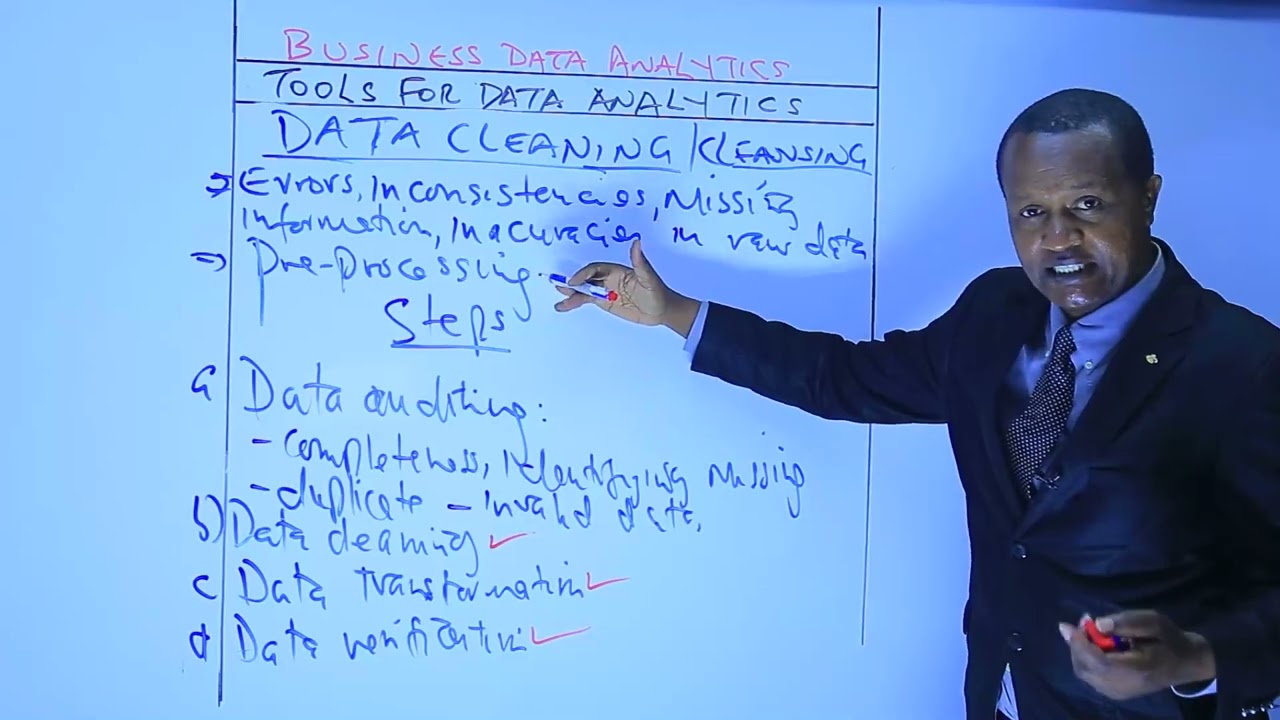 BUSINESS DATA ANALYTICS
TOOLS FOR DATA ANALYTICS
DATA CLEANING/CLEANSING
⇒ Errors, Inconsistencies, Missing
Information, Inacuracies in raw data
⇒ Pre-processing
Steps
a Data auditing:
- completeness, identifying missing
- duplicate - invalid data,
b) Data cleaning ✓
c Data transformation ✓
d Data verification ✓